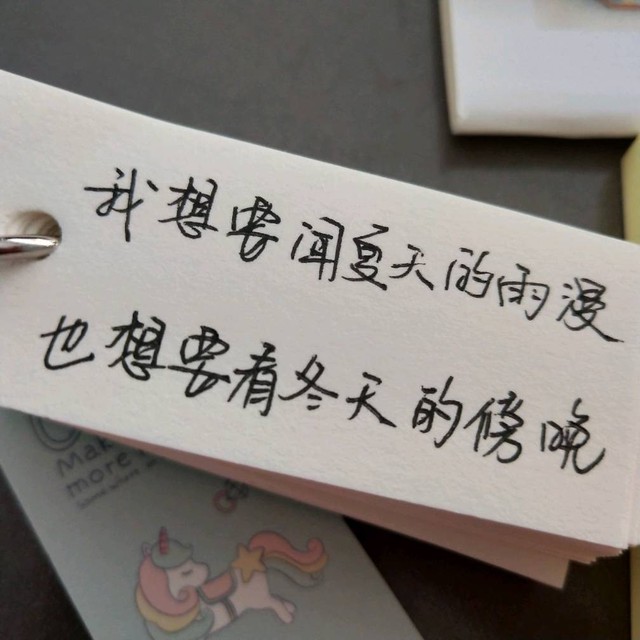 我想要闻夏天的雨漫
也想要看冬天的傍晚
Mak
more